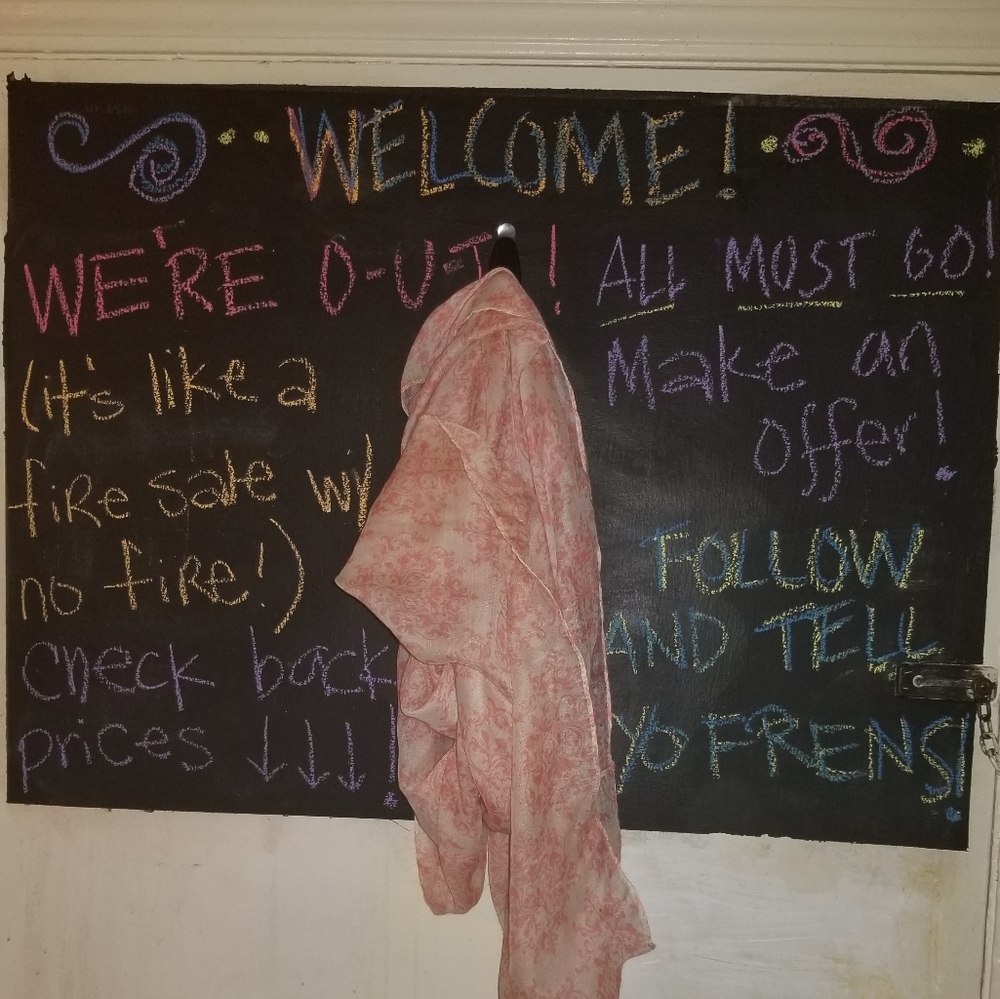 WELCOME!
WE'RE O-U-T!
(it's like a
fire sale w/
no fire!)
check back
prices ↓↓↓!
ALL MUST GO!
Make an
offer!
FOLLOW
AND TELL
YO FRENS!